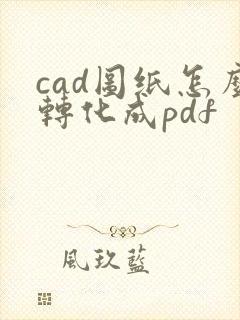 cad圖紙怎麼
轉化成pdf
風玖藍